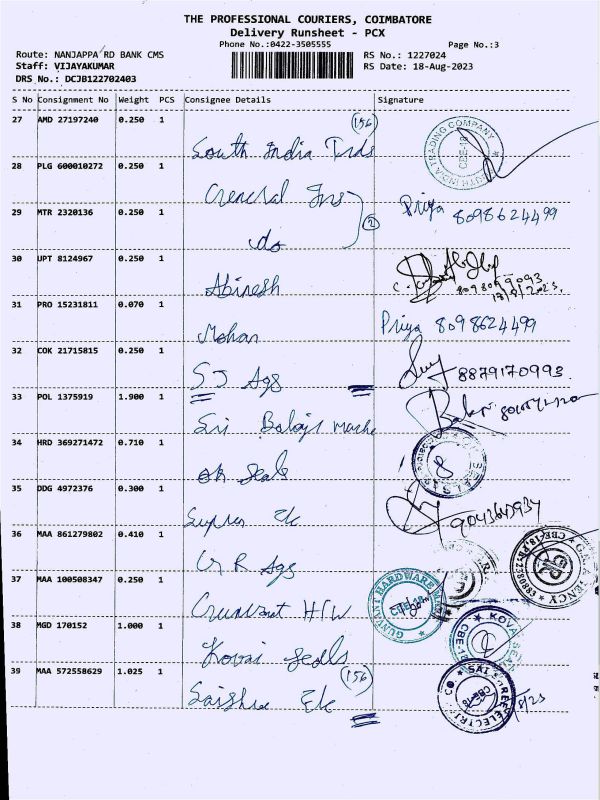 THE PROFESSIONAL COURIERS, COIMBATORE
Delivery Runsheet - PCX
Phone No.:0422-3505555 Page No.:3
Route: NANJAPPA RD BANK CMS RS No.: 1227024
Staff: VIJAYAKUMAR RS Date: 18-Aug-2023
DRS No.: DCJB122702403
S No Consignment No Weight PCS Consignee Details Signature
27 AMD 27197240 0.250 1 (156)
South India Trds SOUTH INDIA TRADING COMPANY CBE-18
28 PLG 600010272 0.250 1
General Ins
29 MTR 2320136 0.250 1 (2) Priya 8098624499
do
30 UPT 8124967 0.250 1
Abinesh 8098099093
31 PRO 15231811 0.070 1
Mohan Priya 8098624499
32 COK 21715815 0.250 1
SJ Ags 8879170993
33 POL 1375919 1.900 1
Sri Balaji Mache
34 HRD 369271472 0.710 1
ok Seals
35 DDG 4972376 0.300 1
Supren Elc
36 MAA 861279802 0.410 1
G R Ags
37 MAA 100508347 0.250 1
Gunvant H/W GUNVANT HARDWARE
38 MGD 170152 1.000 1
Kovai Seals KOVAI SEALS
39 MAA 572558629 1.025 1 (156)
Saishre Elc SAI SHREE ELECTRIC CO. CBE-18